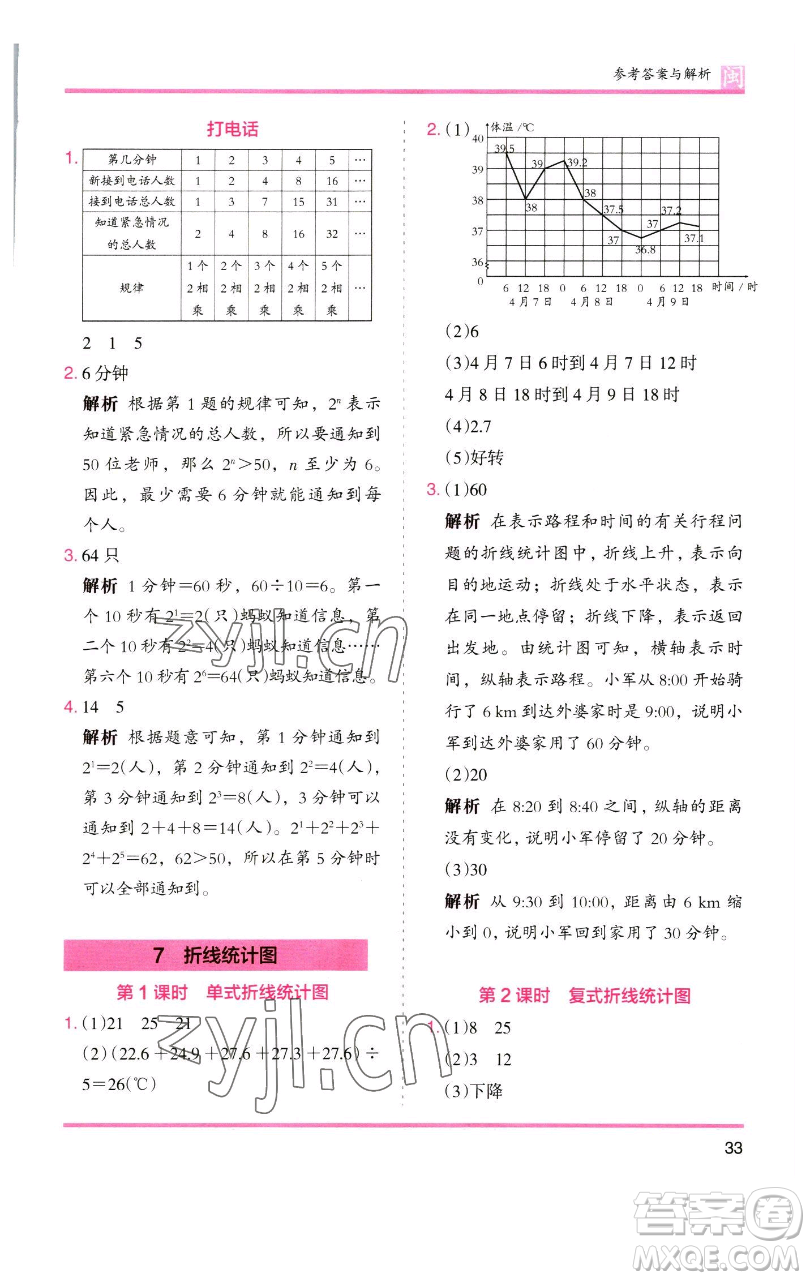 参考答案与解析 闽
打电话
1.
第几分钟 1 2 3 4 5 …
新接到电话人数 1 2 4 8 16 …
接到电话总人数 1 3 7 15 31 …
知道紧急情况的总人数 2 4 8 16 32 …
规律 1个2相乘 2个2相乘 3个2相乘 4个2相乘 5个2相乘 …
2 1 5
2. 6 分钟
解析 根据第 1 题的规律可知，2ⁿ 表示
知道紧急情况的总人数，所以要通知到
50 位老师，那么 2ⁿ＞50，n 至少为 6。
因此，最少需要 6 分钟就能通知到每
个人。
3. 64 只
解析 1 分钟＝60 秒，60÷10＝6。第一
个 10 秒有 2¹＝2(只)蚂蚁知道信息，第
二个 10 秒有 2²＝4(只)蚂蚁知道信息……
第六个 10 秒有 2⁶＝64(只)蚂蚁知道信息。
4. 14 5
解析 根据题意可知，第 1 分钟通知到
2¹＝2(人)，第 2 分钟通知到 2²＝4(人)，
第 3 分钟通知到 2³＝8(人)，3 分钟可以
通知到 2＋4＋8＝14(人)。2¹＋2²＋2³＋
2⁴＋2⁵＝62，62＞50，所以在第 5 分钟时
可以全部通知到。
7 折线统计图
第 1 课时 单式折线统计图
1. (1)21 25 21
(2)(22.6＋24.9＋27.6＋27.3＋27.6)÷
5＝26(℃)
2. (1)
体温/℃
40
39
38
37
36
0
39.5 38 39 39.2 38 37.5 37 36.8 37 37.2 37.1
6 12 18 0 6 12 18 0 6 12 18 时间/时
4月7日 4月8日 4月9日
(2)6
(3)4 月 7 日 6 时到 4 月 7 日 12 时
4 月 8 日 18 时到 4 月 9 日 18 时
(4)2.7
(5)好转
3. (1)60
解析 在表示路程和时间的有关行程问
题的折线统计图中，折线上升，表示向
目的地运动；折线处于水平状态，表示
在同一地点停留；折线下降，表示返回
出发地。由统计图可知，横轴表示时
间，纵轴表示路程。小军从 8:00 开始骑
行了 6 km 到达外婆家时是 9:00，说明小
军到达外婆家用了 60 分钟。
(2)20
解析 在 8:20 到 8:40 之间，纵轴的数据
没有变化，说明小军停留了 20 分钟。
(3)30
解析 从 9:30 到 10:00，距离由 6 km 缩
小到 0，说明小军回到家用了 30 分钟。
第 2 课时 复式折线统计图
1. (1)8 25
(2)3 12
(3)下降
33
zyjl.cn
zyjl.cn
答案圈
MXQE.COM